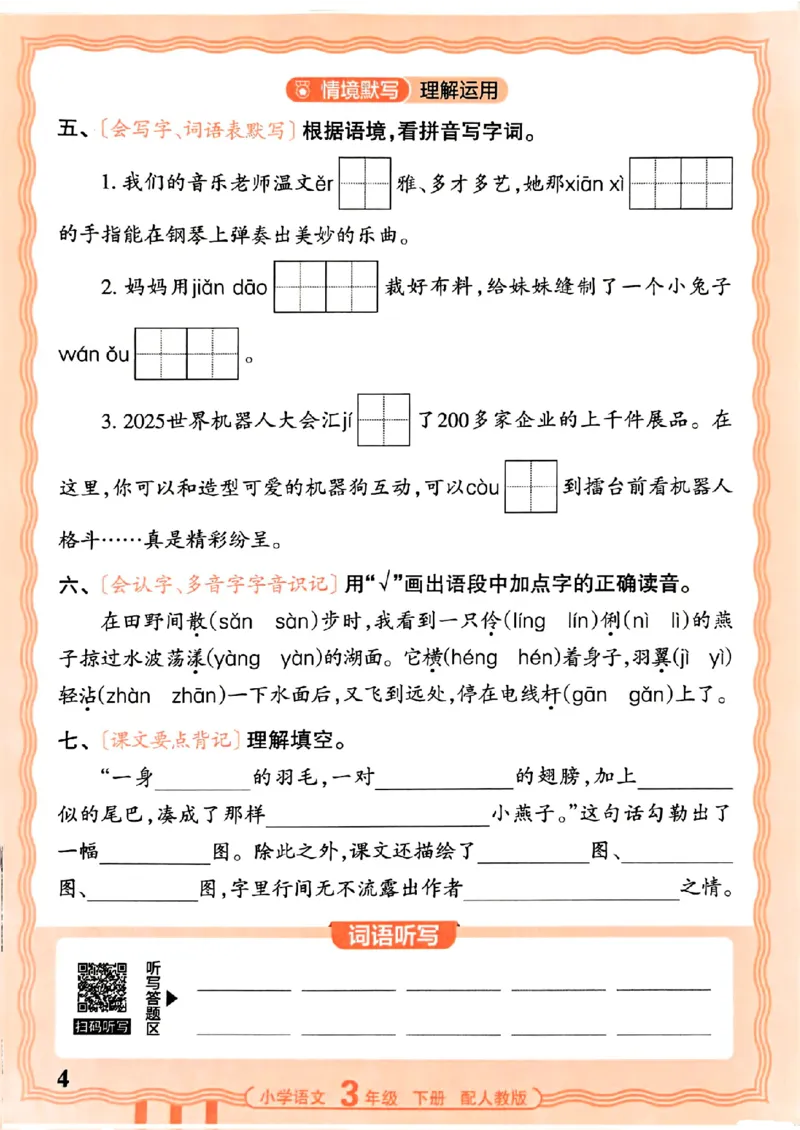 情境默写 理解运用
五、〔会写字、词语表默写〕根据语境,看拼音写字词。
1. 我们的音乐老师温文ěr 雅、多才多艺,她那xiān xì
的手指能在钢琴上弹奏出美妙的乐曲。
2. 妈妈用jiǎn dāo 裁好布料,给妹妹缝制了一个小兔子
wán ǒu 。
3. 2025世界机器人大会汇jí 了200多家企业的上千件展品。在
这里,你可以和造型可爱的机器狗互动,可以còu 到擂台前看机器人
格斗……真是精彩纷呈。
六、〔会认字、多音字字音识记〕用“√”画出语段中加点字的正确读音。
在田野间散(sǎn sàn)步时,我看到一只伶(líng lín)俐(nì lì)的燕
子掠过水波荡漾(yàng yàn)的湖面。它横(héng hén)着身子,羽翼(jì yì)
轻沾(zhàn zhān)一下水面后,又飞到远处,停在电线杆(gān gǎn)上了。
七、〔课文要点背记〕理解填空。
“一身________的羽毛,一对____________的翅膀,加上________
似的尾巴,凑成了那样____________________小燕子。”这句话勾勒出了
一幅__________图。除此之外,课文还描绘了__________图、__________
图、__________图,字里行间无不流露出作者____________________之情。
词语听写
听写答题区
扫码听写
4
小学语文 3年级 下册 配人教版